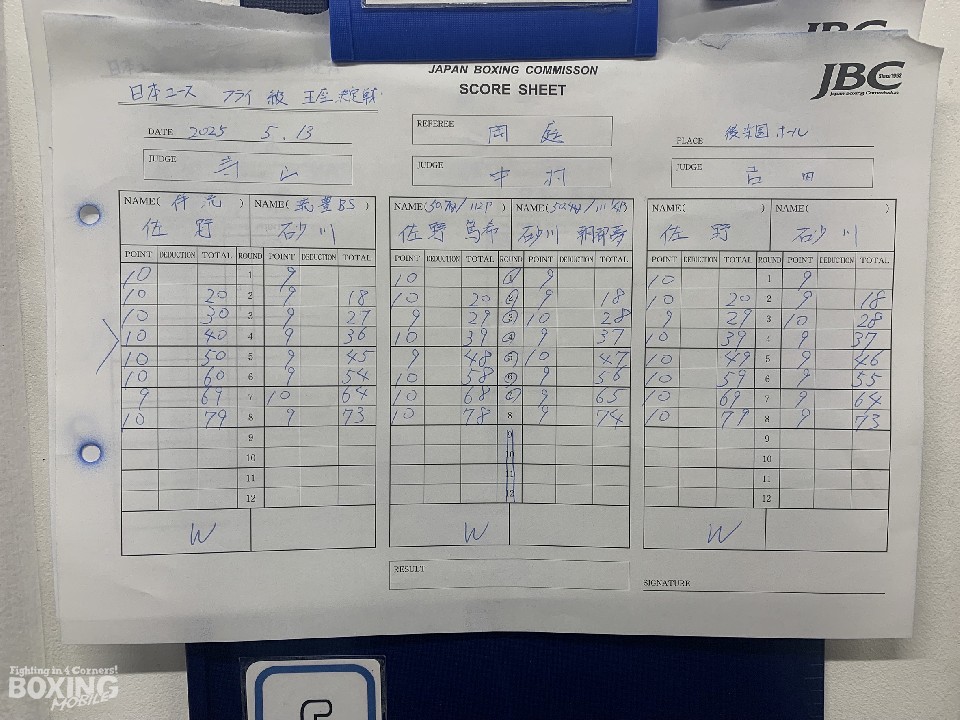 JBC
JAPAN BOXING COMMISSON
SCORE SHEET
JBC Since 1952
Japan Boxing Commission
日本ユース フライ級 王座決定戦
DATE 2025 5.13
REFEREE
PLACE 後楽園ホール
JUDGE 寺山
JUDGE 中村
JUDGE 吉田
NAME( ) NAME( 筑豊BS ) NAME( ) NAME( ) NAME( ) NAME( )
佐野 砂川 佐野 篤希 砂川 佐野 砂川
POINT DEDUCTION TOTAL ROUND POINT DEDUCTION TOTAL POINT DEDUCTION TOTAL ROUND POINT DEDUCTION TOTAL POINT DEDUCTION TOTAL ROUND POINT DEDUCTION TOTAL
10 1 9 10 1 9 10 1 9
10 20 2 9 18 10 20 2 9 18 10 20 2 9 18
10 30 3 9 27 9 29 3 10 28 9 29 3 10 28
10 40 4 9 36 10 39 4 9 37 10 39 4 9 37
10 50 5 9 45 9 48 5 10 47 10 49 5 9 46
10 60 6 9 54 10 58 6 9 56 10 59 6 9 55
9 69 7 10 64 10 68 7 9 65 10 69 7 9 64
10 79 8 9 73 10 78 8 9 74 10 79 8 9 73
9 9 9
10 10 10
11 11 11
12 12 12
W W W
RESULT
SIGNATURE
Fighting in 4 Corners!
BOXING
MOBILE